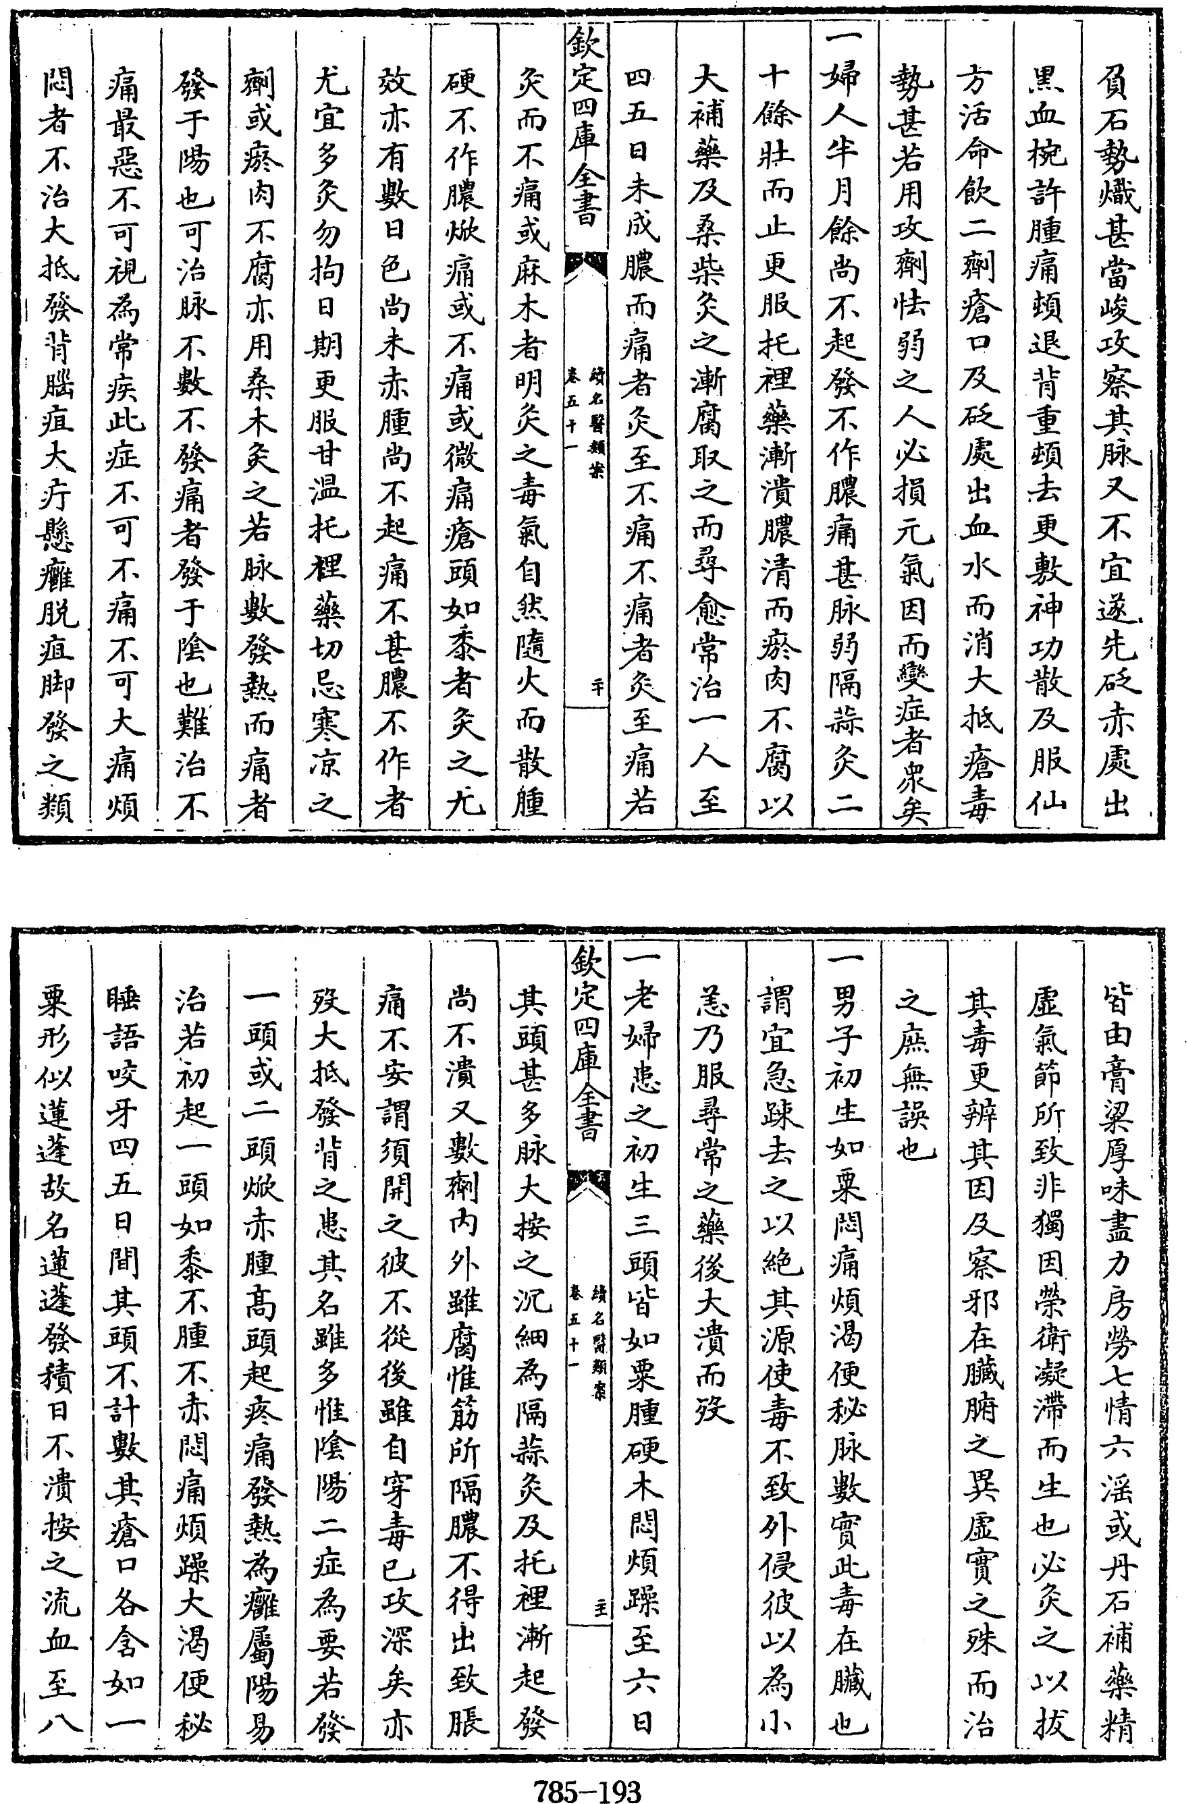 負石勢熾甚當峻攻察其脉又不宜遂先砭赤處出
黑血椀許腫痛頓退背重頓去更敷神功散及服仙
方活命飲二劑瘡口及砭處出血水而消大抵瘡毒
勢甚若用攻劑怯弱之人必損元氣因而變症者衆矣
一婦人半月餘尚不起發不作膿痛甚脉弱隔蒜灸二
十餘壯而止更服托裡藥漸潰膿清而瘀肉不腐以
大補藥及桑柴灸之漸腐取之而尋愈常治一人至
四五日未成膿而痛者灸至不痛不痛者灸至痛若
欽定四庫全書
續名醫類案
卷五十一
二十
灸而不痛或麻木者明灸之毒氣自然隨火而散腫
硬不作膿焮痛或不痛或微痛瘡頭如黍者灸之尤
效亦有數日色尚未赤腫尚不起痛不甚膿不作者
尤宜多灸勿拘日期更服甘温托裡藥切忌寒凉之
劑或瘀肉不腐亦用桑木灸之若脉數發熱而痛者
發于陽也可治脉不數不發痛者發于陰也難治不
痛最惡不可視為常疾此症不可不痛不可大痛煩
悶者不治大抵發背腦疽大疔懸癰脱疽脚發之類
皆由膏粱厚味盡力房勞七情六滛或丹石補藥精
虛氣節所致非獨因榮衛凝滯而生也必灸之以拔
其毒更辨其因及察邪在臟腑之異虛實之殊而治
之庶無誤也
一男子初生如粟悶痛煩渴便秘脉數實此毒在臟也
謂宜急踈去之以絶其源使毒不致外侵彼以為小
恙乃服尋常之藥後大潰而歿
一老婦患之初生三頭皆如粟腫硬木悶煩躁至六日
欽定四庫全書
續名醫類案
卷五十一
其頭甚多脉大按之沉細為隔蒜灸及托裡漸起發
尚不潰又數劑内外雖腐惟筋所隔膿不得出致脹
痛不安謂須開之彼不從後雖自穿毒已攻深矣亦
歿大抵發背之患其名雖多惟陰陽二症為要若發
一頭或二頭焮赤腫高頭起疼痛發熱為癰屬陽易
治若初起一頭如黍不腫不赤悶痛煩躁大渴便秘
睡語咬牙四五日間其頭不計數其瘡口各含如一
粟形似蓮蓬故名蓮蓬發積日不潰按之流血至八
785-193